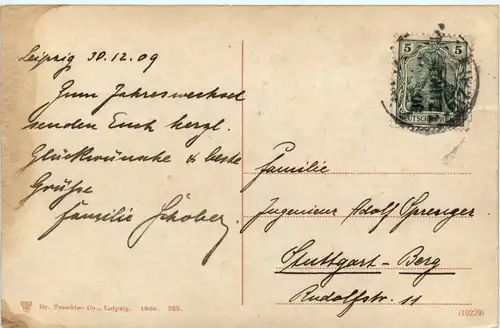 Leipzig 30.12.09
Zum Jahreswechsel
senden Euch herzl.
Glückwünsche & beste
Grüße
Familie Schober.
5 5
DEUTSCHES
Familie
Ingenieur Adolf Sprenger
Stuttgart-Berg
Rudolfstr. 11
Dr. Trenkler Co., Leipzig. 1908. 265.
(10229)